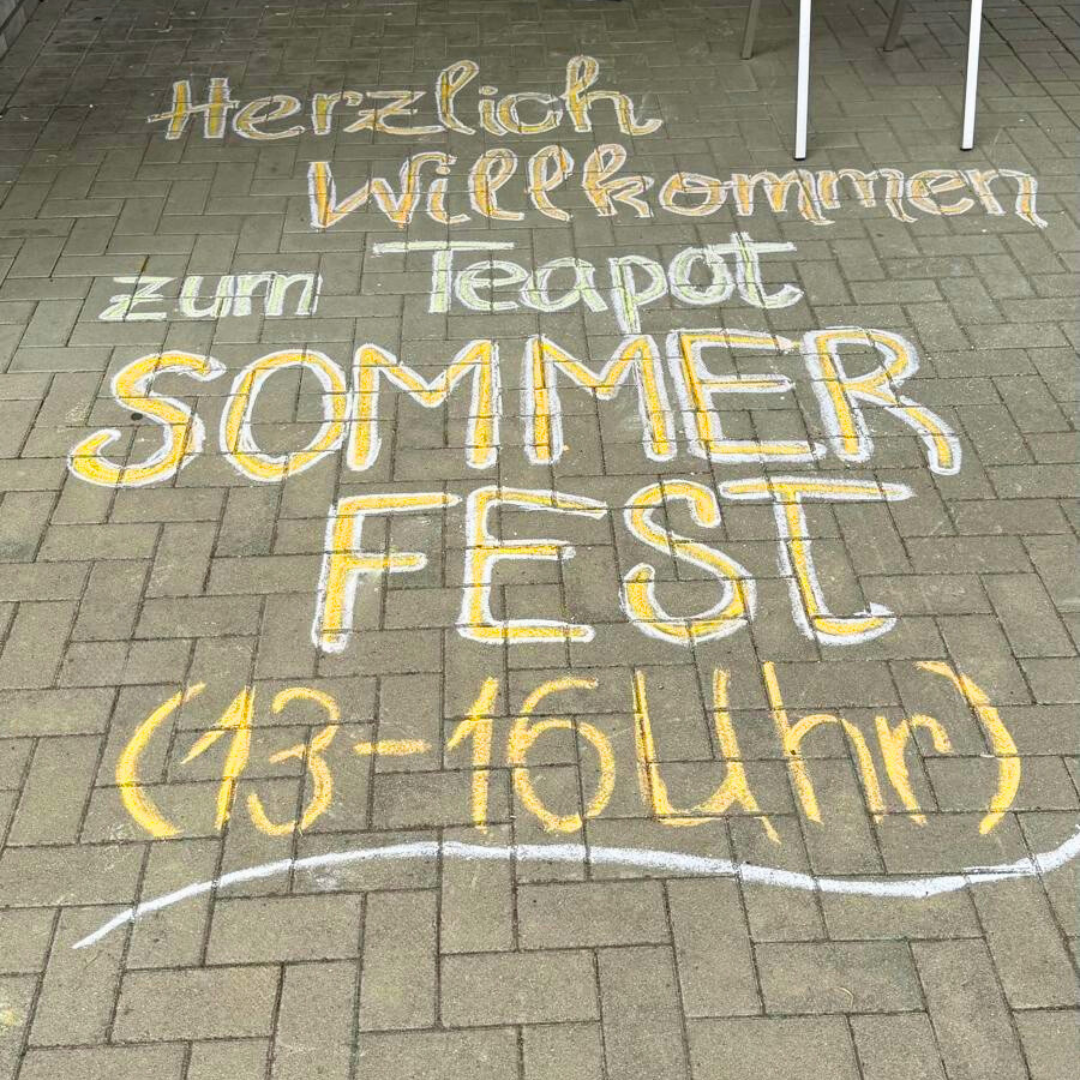 Herzlich
Willkommen
zum Teapot
SOMMER
FEST
(13-16Uhr)